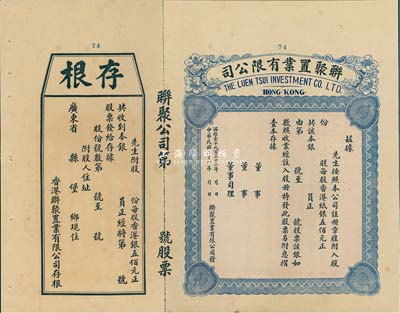 74
司公限有業置聚聯
THE LUEN TSUI INVESTMENT CO. LTD.
HONG KONG
茲據
先生按照本公司註册章程附入股
份
股每股香港紙銀五佰元正
共該本銀
員正
由第
號至
號股票該銀如
數照收業經註入股册特發此股票另附息摺
壹本存據
董事
董事
董事司理
聯聚置業有限公司發
聯聚公司第
號股票
74
根存
先生附股
份每股香港銀五佰元正
共收到本銀
員正經將第
號
股票發給存據
股份號數第
號至
號
附股人住址
廣東省
縣
堡
鄉現住
香港聯聚置業有限公司存根